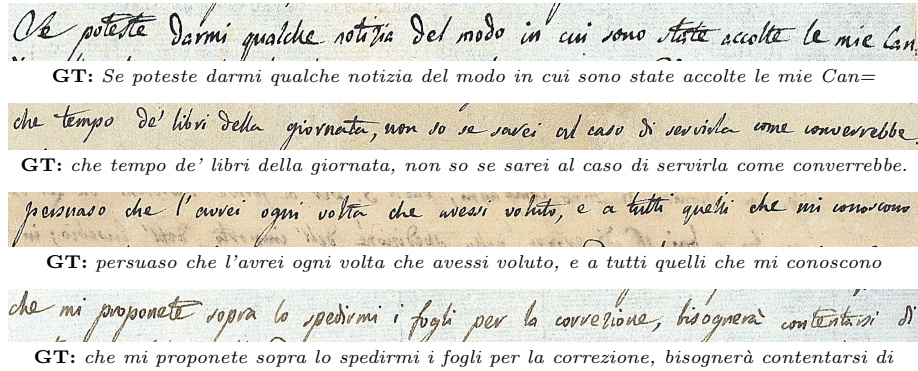 Se poteste darmi qualche notizia del modo in cui sono state accolte le mie Can=
GT: Se poteste darmi qualche notizia del modo in cui sono state accolte le mie Can=
che tempo de' libri della giornata, non so se sarei al caso di servirla come converrebbe.
GT: che tempo de' libri della giornata, non so se sarei al caso di servirla come converrebbe.
persuaso che l'avrei ogni volta che avessi voluto, e a tutti quelli che mi conoscono
GT: persuaso che l'avrei ogni volta che avessi voluto, e a tutti quelli che mi conoscono
che mi proponete sopra lo spedirmi i fogli per la correzione, bisognerà contentarsi di
GT: che mi proponete sopra lo spedirmi i fogli per la correzione, bisognerà contentarsi di